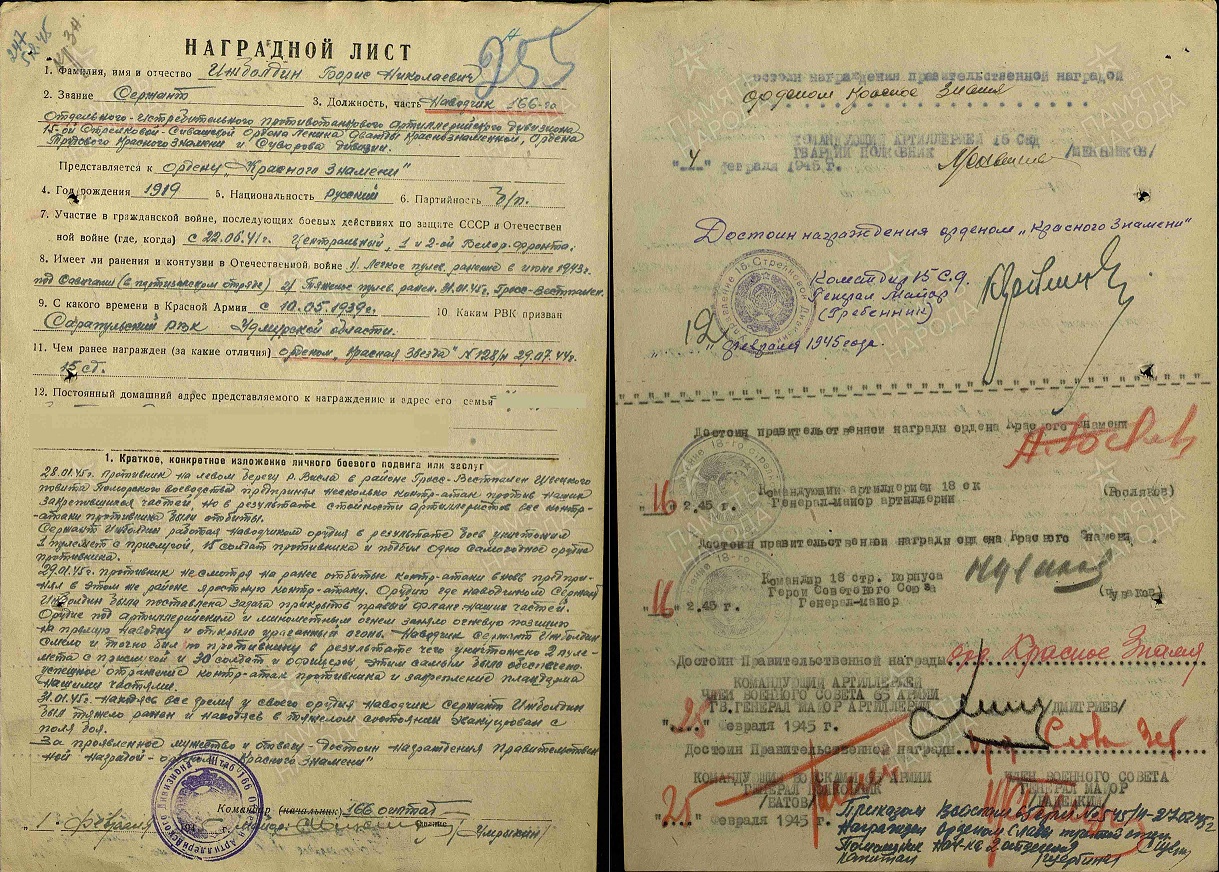 247
5.2.45
255
НАГРАДНОЙ ЛИСТ
1. Фамилия, имя и отчество Ижболдин Борис Николаевич
2. Звание Сержант 3. Должность, часть Наводчик 166-го
Отдельного-Истребительного противотанкового артиллерийского дивизиона
15-ой Стрелковой-Сивашской Ордена Ленина дважды Краснознаменной, Ордена
Трудового Красного Знамени и Суворова дивизии.
Представляется к Ордену „Красного Знамени"
4. Год рождения 1919 5. Национальность Русский 6. Партийность б/п.
7. Участие в гражданской войне, последующих боевых действиях по защите СССР и Отечествен
ной войне (где, когда) с 22.06.41г. Центральный, 1 и 2-ой Белор. фронта.
8. Имеет ли ранения и контузии в Отечественной войне 1) Легкое пулев. ранение в июне 1943г.
под (в партизанском отряде) 2) Тяжелое пулев. ранен. 31.01.45г. Гросс-Вестпален.
9. С какого времени в Красной Армии с 10.05.1939г. 10. Каким РВК призван
Сарапульский РВК Удмурской области.
11. Чем ранее награжден (за какие отличия) орденом „Красная Звезда" №128/н 29.07.44г.
15 сд.
12. Постоянный домашний адрес представляемого к награждению и адрес его семьи
1. Краткое, конкретное изложение личного боевого подвига или заслуг
28.01.45г. Противник на левом берегу р. Висла в районе Гросс-Вестпален Швецкого
повята Поморского воеводства предпринял несколько контр-атак против наших
закрепившихся частей, но в результате стойкости артиллеристов все контр-
атаки противника были отбиты.
Сержант Ижболдин работая наводчиком орудия в результате боев уничтожил
1 пулемет с прислугой, 15 солдат противника и подбил одно самоходное орудие
противника.
29.01.45г. противник несмотря на ранее отбитые контр-атаки вновь предпри-
нял в этом же районе яростную контр-атаку. Орудию где наводчиком Сержант
Ижболдин была поставлена задача прикрыть правый фланг наших частей.
Орудие под артиллерийским и минометным огнем заняло огневую позицию
на прямую наводку и открыло ураганный огонь. Наводчик сержант Ижболдин
смело и точно бил по противнику в результате чего уничтожено 2 пуле-
мета с прислугой и 30 солдат и офицеров, этим самым было обеспечено
успешное отражение контр-атак противника и закрепление плацдарма
нашими частями.
31.01.45г. находясь все время у своего орудия наводчик Сержант Ижболдин
был тяжело ранен и находясь в тяжелом состоянии эвакуирован с
поля боя.
За проявленное мужество и отвагу достоин награждения Правительствен-
ной наградой - орденом „Красного Знамени"
Командир (начальник) 166 оиптад
"1" февраля
Достоин награждения правительственной наградой
орденом Красное Знамя
КОМАНДУЮЩИЙ АРТИЛЛЕРИЕЙ 15 Сид
ГВАРДИИ ПОЛКОВНИК /МЕНЬШИКОВ/
"4" февраля 1945 г.
Достоин награждения орденом „Красного Знамени"
Командир 15 С.Д.
Генерал Майор
(Гребенник)
12 " февраля 1945 года.
Достоин правительственной награды ордена Красного Знамени
Командующий артиллерией 18 ск
Генерал-майор артиллерии (Восляков)
"16" 2.45 г.
Достоин правительственной награды ордена Красного Знамени
Командир 18 стр. корпуса
Герой Советского Союза
Генерал-майор (Чуваков)
"16" 2.45 г.
Достоин Правительственной награды орд. Красное Знамя
КОМАНДУЮЩИЙ АРТИЛЛЕРИЕЙ
ЧЛЕН ВОЕННОГО СОВЕТА 65 АРМИИ
ГВ. ГЕНЕРАЛ МАЙОР АРТИЛЛЕРИИ /ДМИТРИЕВ/
"25" февраля 1945 г.
Достоин Правительственной награды орд. Слава 3 ст
КОМАНДУЮЩИЙ ВОЙСКАМИ 65 АРМИИ ЧЛЕН ВОЕННОГО СОВЕТА
ГЕНЕРАЛ ПОЛКОВНИК ГЕНЕРАЛ МАЙОР
/БАТОВ/
"25" февраля 1945 г.
Приказом Войскам 65 Армии №545/н-27.02.45г
Награжден Орденом Славы третей степ.
Помощник Нач-ка 2 отделения
Капитан
ПАМЯТЬ НАРОДА